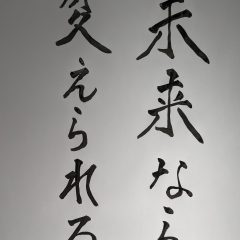 未来なら
変えられる